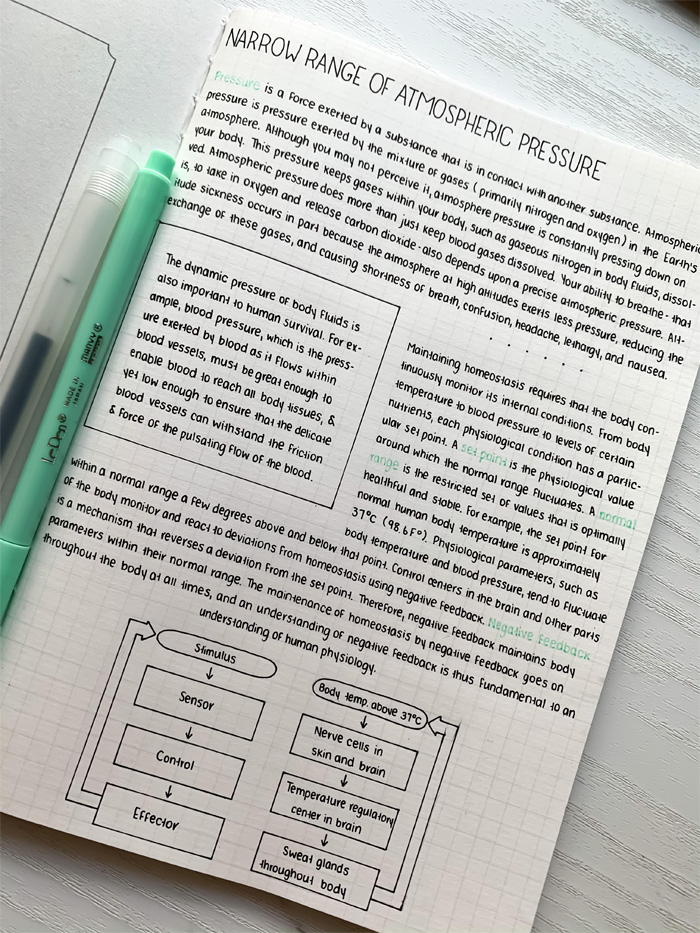 NARROW RANGE OF ATMOSPHERIC PRESSURE
Pressure is a force exerted by a substance that is in contact with another substance. Atmospheric
pressure is pressure exerted by the mixture of gases (primarily nitrogen and oxygen) in the Earth's
atmosphere. Although you may not perceive it, atmosphere pressure is constantly pressing down on
your body. This pressure keeps gases within your body, such as gaseous nitrogen in body fluids, dissol-
ved. Atmospheric pressure does more than just keep blood gases dissolved. Your ability to breathe - that
is, to take in oxygen and release carbon dioxide - also depends upon a precise atmospheric pressure. Alt-
itude sickness occurs in part because the atmosphere at high altitudes exerts less pressure, reducing the
exchange of these gases, and causing shortness of breath, confusion, headache, lethargy, and nausea.
The dynamic pressure of body fluids is
also important to human survival. For ex-
ample, blood pressure, which is the press-
ure exerted by blood as it flows within
blood vessels, must be great enough to
enable blood to reach all body tissues, &
yet low enough to ensure that the delicate
blood vessels can withstand the friction
& force of the pulsating flow of the blood.
Maintaining homeostasis requires that the body con-
tinuously monitor its internal conditions. From body
temperature to blood pressure to levels of certain
nutrients, each physiological condition has a partic-
ular set point. A set point is the physiological value
around which the normal range fluctuates. A normal
range is the restricted set of values that is optimally
healthful and stable. For example, the set point for
normal human body temperature is approximately
37°C (98.6F°). Physiological parameters, such as
body temperature and blood pressure, tend to fluctuate
within a normal range a few degrees above and below that point. Control centers in the brain and other parts
of the body monitor and react to deviations from homeostasis using negative feedback. Negative feedback
is a mechanism that reverses a deviation from the set point. Therefore, negative feedback maintains body
parameters within their normal range. The maintenance of homeostasis by negative feedback goes on
throughout the body at all times, and an understanding of negative feedback is thus fundamental to an
understanding of human physiology.
Stimulus
Sensor
Control
Effector
Body temp. above 37°C
Nerve cells in
skin and brain
Temperature regulatory
center in brain
Sweat glands
throughout body
LePen®
MADE IN
JAPAN
MARVY®